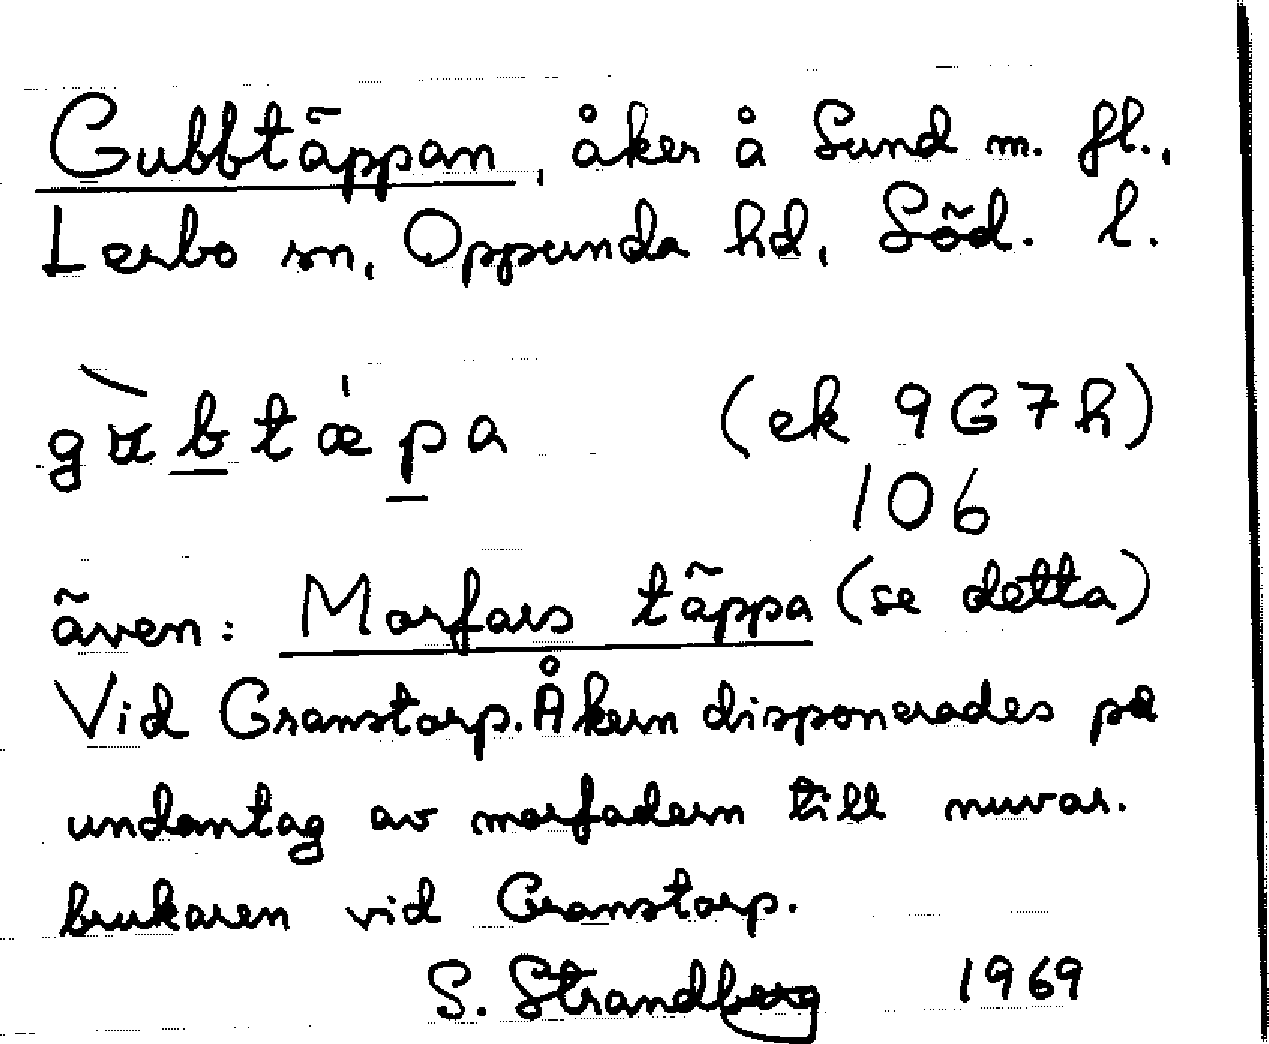 Gubbtäppan, åker å Sund m. fl.,
Lerbo sn, Oppunda hd, Söd. l.
gu̇btæ'pa (ek 9G7h)
106
även: Morfars täppa (se detta)
Vid Granstorp. Åkern disponerades på
undantag av morfadern till nuvar.
brukaren vid Granstorp.
S. Strandberg 1969